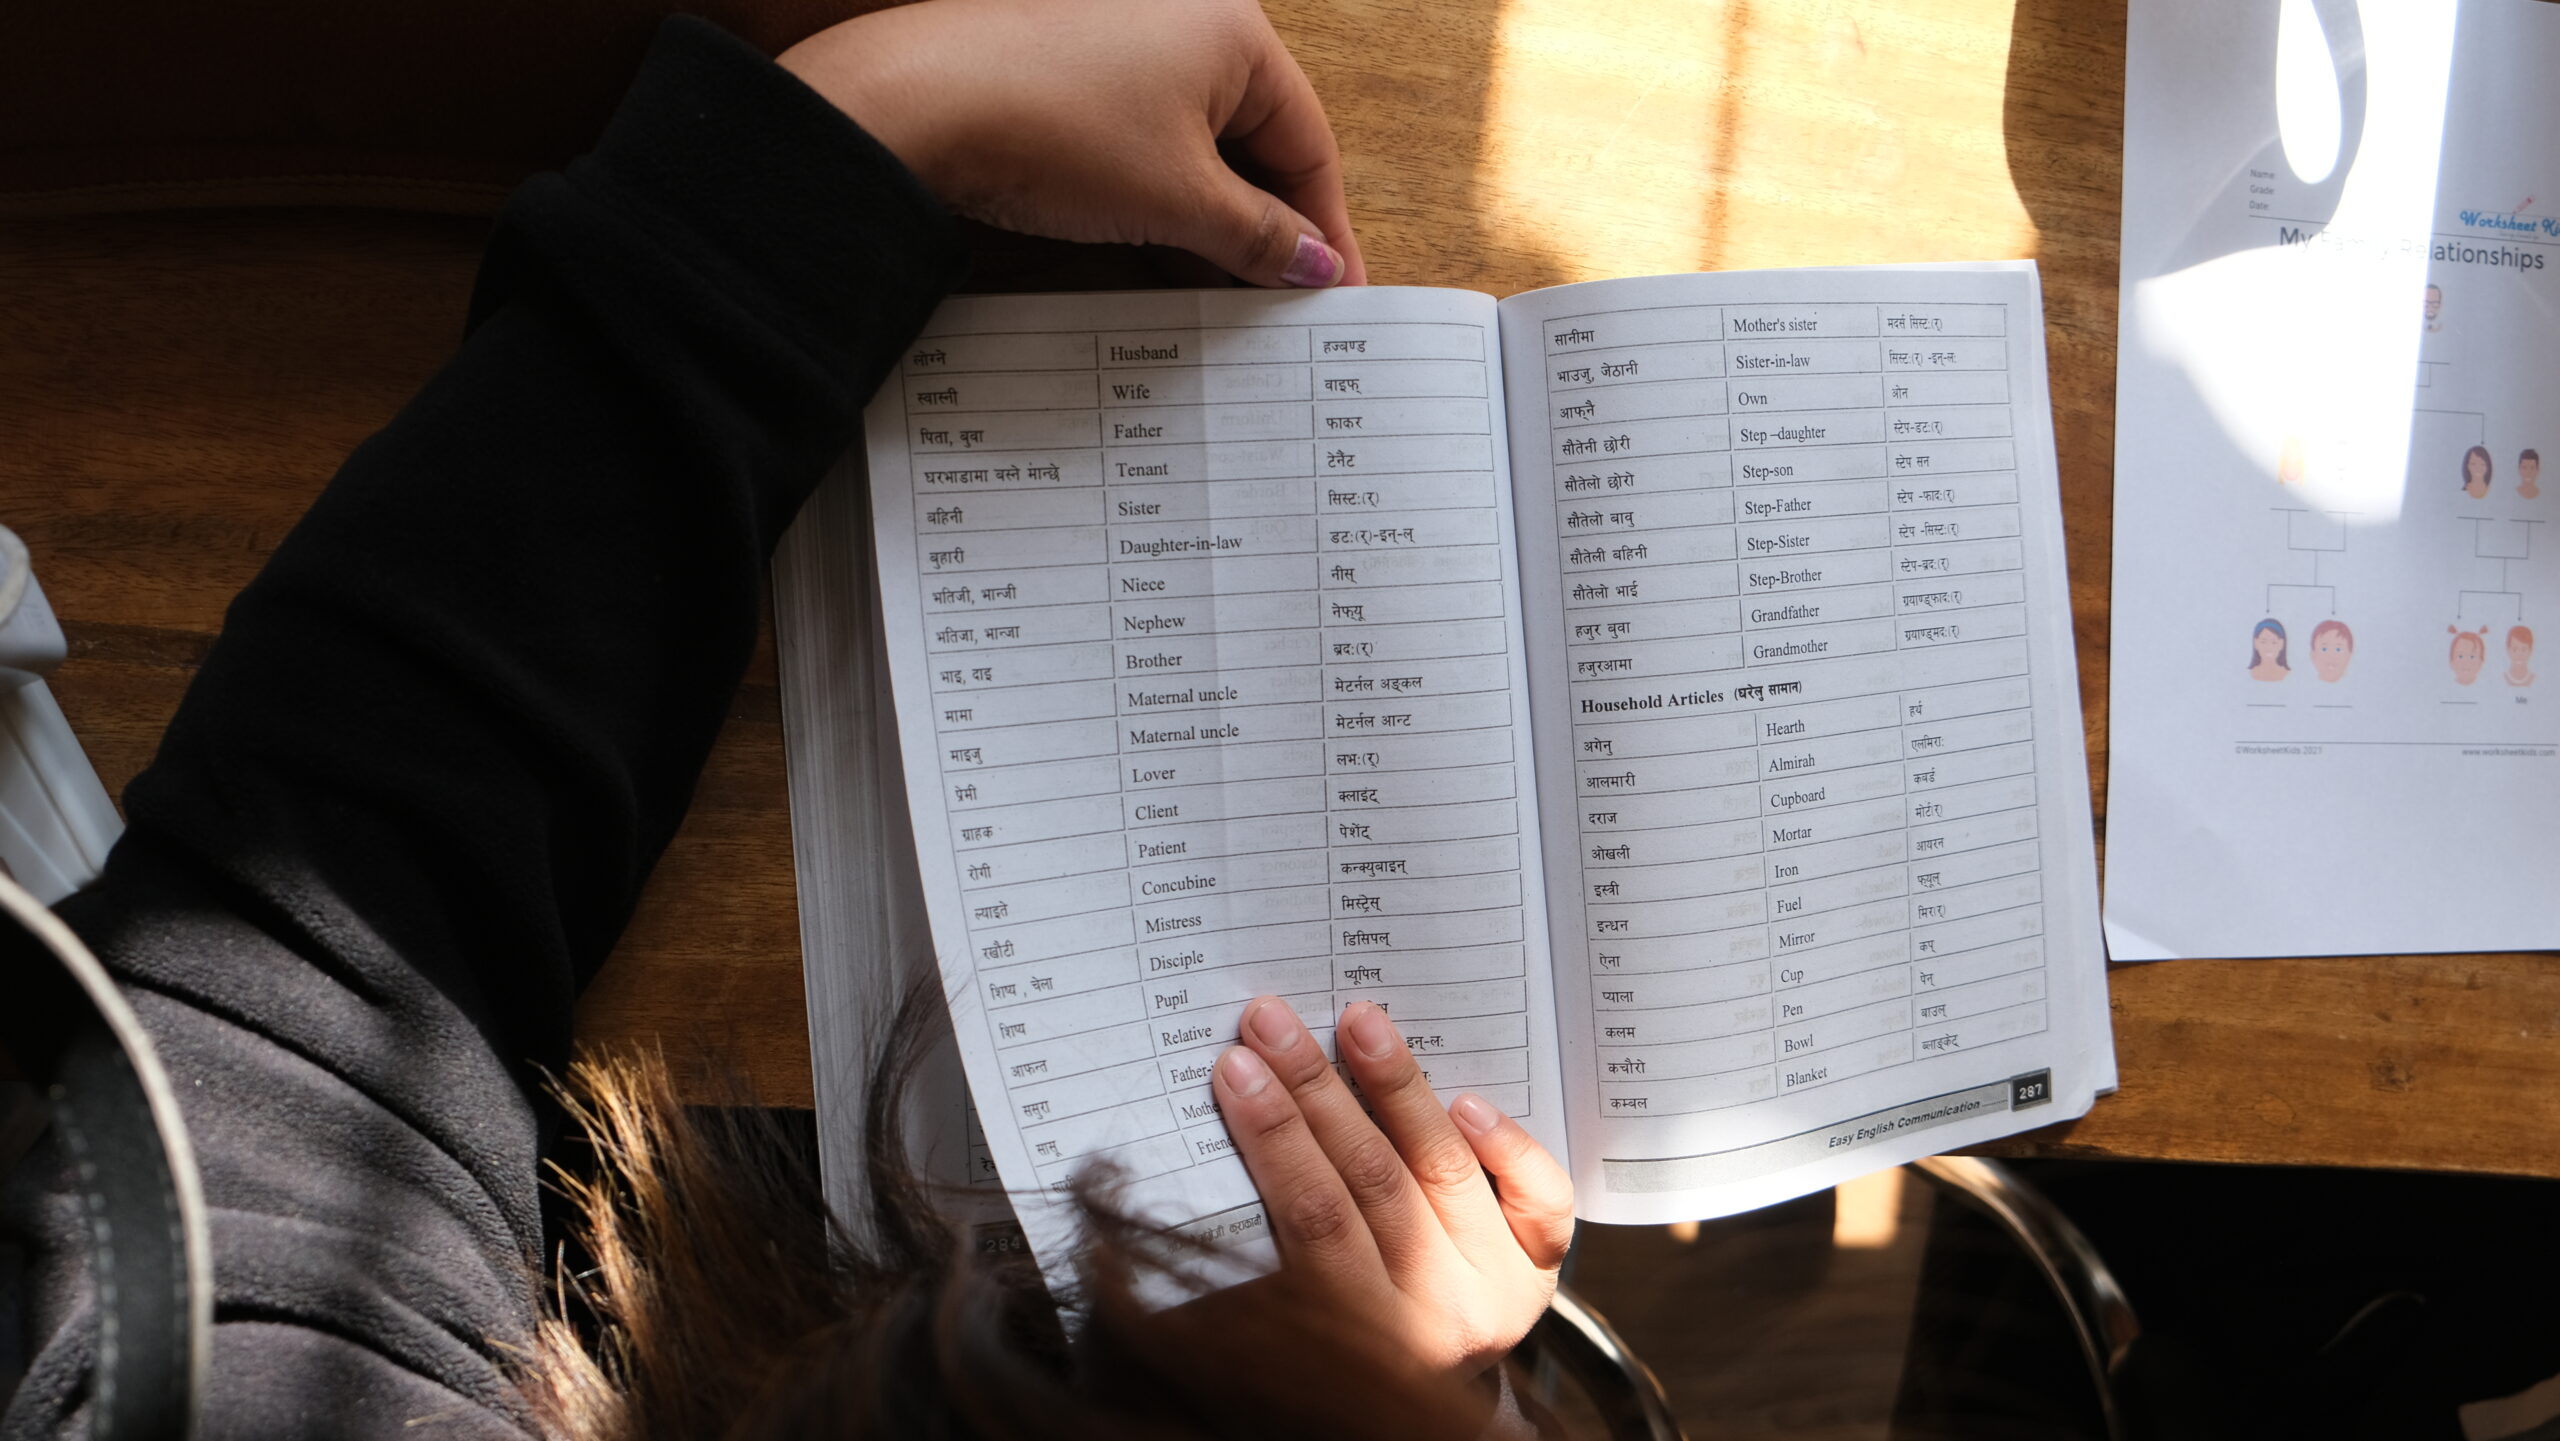 लोग्ने Husband हज्बण्ड
स्वास्नी Wife वाइफ्
पिता, बुवा Father फाकर
घरभाडामा बस्ने मान्छे Tenant टेनैंट
बहिनी Sister सिस्टः(र्)
बुहारी Daughter-in-law डटः(र्)-इन्-ल्
भतिजी, भान्जी Niece नीस्
भतिजा, भान्जा Nephew नेफ्यू
भाइ, दाइ Brother ब्रदः(र्)
मामा Maternal uncle मेटर्नल अङ्कल
माइजु Maternal uncle मेटर्नल आन्ट
प्रेमी Lover लभः(र्)
ग्राहक Client क्लाइंट्
रोगी Patient पेशेंट्
ल्याइते Concubine कन्क्युबाइन्
रखौटी Mistress मिस्ट्रेस्
शिष्य , चेला Disciple डिसिपल्
शिष्य Pupil प्यूपिल्
आफन्त Relative
ससुरा Father- इन्-लः
सासू
284
सानीमा Mother's sister मदर्स सिस्टः(र्)
भाउजु, जेठानी Sister-in-law सिस्टः(र्) -इन्-लः
आफ्नै Own ओन
सौतेनी छोरी Step –daughter स्टेप-डटः(र्)
सौतेलो छोरो Step-son स्टेप सन
सौतेलो बाबु Step-Father स्टेप -फादः(र्)
सौतेली बहिनी Step-Sister स्टेप -सिस्टः(र्)
सौतेलो भाई Step-Brother स्टेप-ब्रदः(र्)
हजुर बुवा Grandfather ग्रयाण्ड्फादः(र्)
हजुरआमा Grandmother ग्रयाण्ड्मदः(र्)
Household Articles (घरेलु सामान)
अगेनु Hearth हर्थ
आलमारी Almirah एलमिराः
दराज Cupboard कबर्ड
ओखली Mortar मोर्टा(र्)
इस्त्री Iron आयरन
इन्धन Fuel फ्यूल्
ऐना Mirror मिर(र्)
प्याला Cup कप्
कलम Pen पेन्
कचौरो Bowl बाउल्
कम्बल Blanket ब्लाङ्केट्
Easy English Communication 287
Name:
Grade:
Date:
Worksheet
My Family Relationships
Me
©WorksheetKids 2021 www.worksheetkids.com